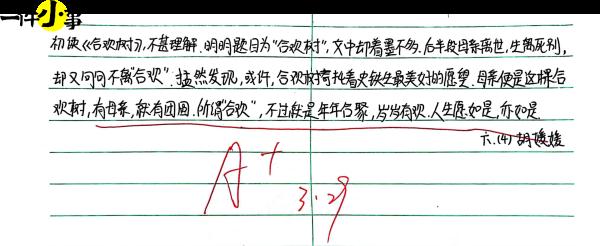 一件小事
初读《合欢树》,不甚理解.明明题目为"合欢树",文中却着墨不多.后半段母亲离世,生离死别,
却又句句不离"合欢".猛然发现,或许,合欢树寄托着史铁生最美好的愿望.母亲便是这棵合
欢树,有母亲,就有团圆.所谓"合欢",不过就是年年合聚,岁岁有欢.人生愿如是,亦如是.
六.(4) 胡媛媛
A+
3.29